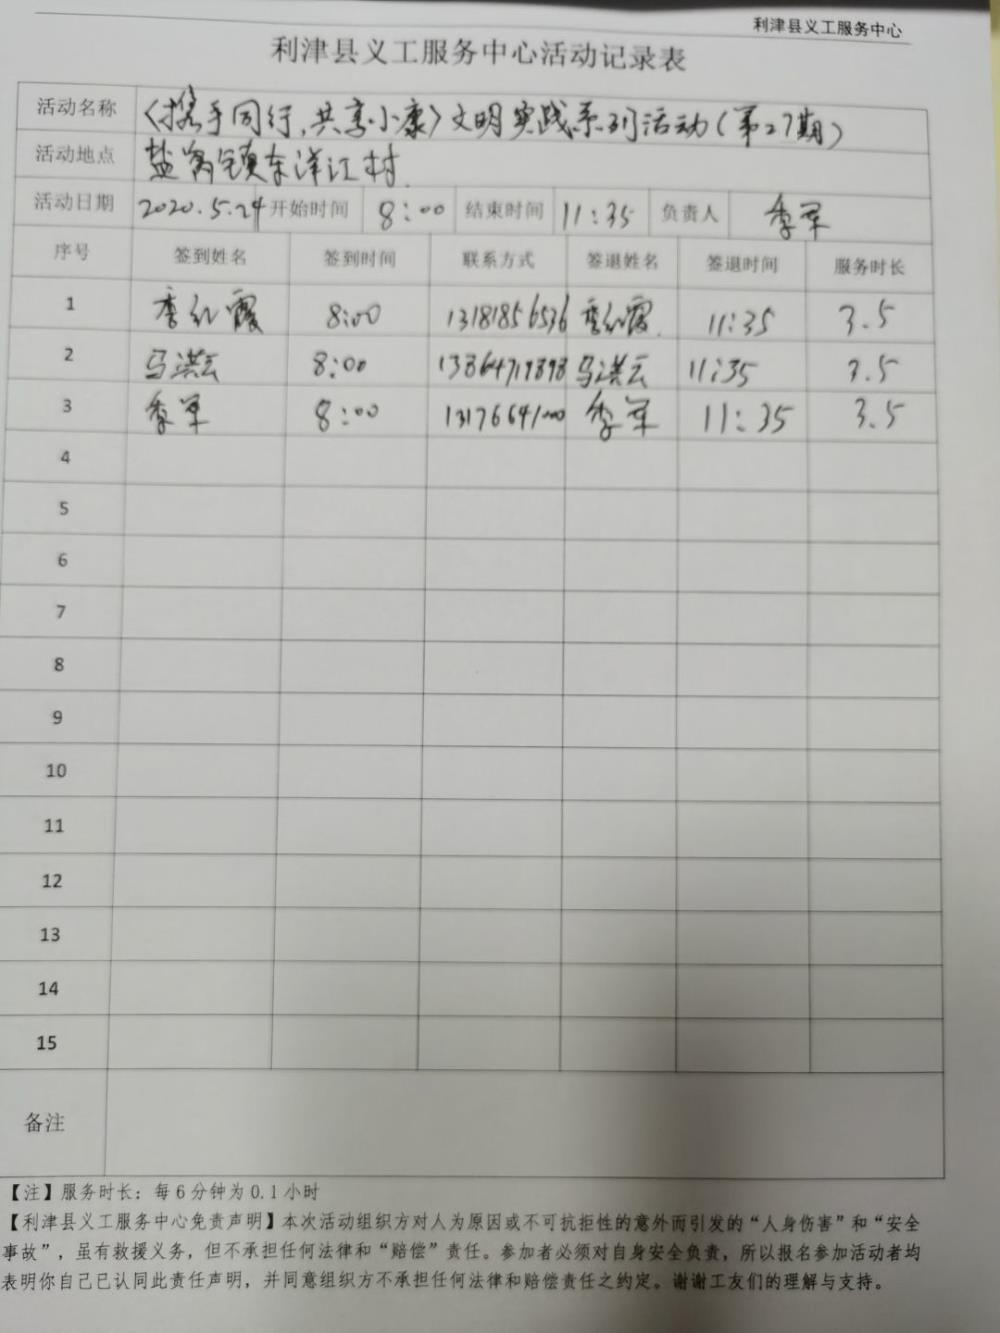 利津县义工服务中心
利津县义工服务中心活动记录表
活动名称 《携手同行,共享小康》文明实践系列活动(第27期)
活动地点 盐窝镇东洋江村
活动日期 2020.5.24 开始时间 8:00 结束时间 11:35 负责人 季军
序号 签到姓名 签到时间 联系方式 签退姓名 签退时间 服务时长
1 李红霞 8:00 13181856536 李红霞 11:35 3.5
2 马洪云 8:00 13864719898 马洪云 11:35 3.5
3 季军 8:00 13176641000 季军 11:35 3.5
4
5
6
7
8
9
10
11
12
13
14
15
备注
【注】服务时长:每6分钟为0.1小时
【利津县义工服务中心免责声明】本次活动组织方对人为原因或不可抗拒性的意外而引发的“人身伤害”和“安全
事故”,虽有救援义务,但不承担任何法律和“赔偿”责任。参加者必须对自身安全负责,所以报名参加活动者均
表明你自己已认同此责任声明,并同意组织方不承担任何法律和赔偿责任之约定。谢谢工友们的理解与支持。